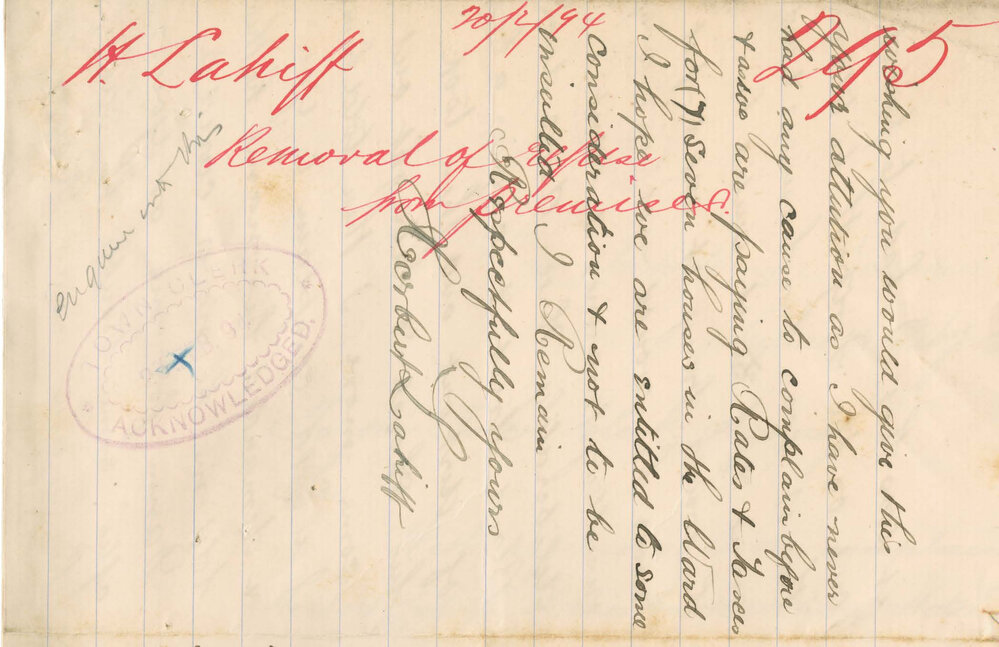 wishing you would give this
attention as I have never
had any cause to complain before
& as we are paying Rates & Taxes
for (7) Seven houses in the Ward
I hope we are intitled to some
consideration & not to be
insulted I Remain
Respectfully yours
Herbert Lahiff
20/2/94
295
H. Lahiff
Removal of refuse
from premises.
TOWN CLERK
ACKNOWLEDGED.